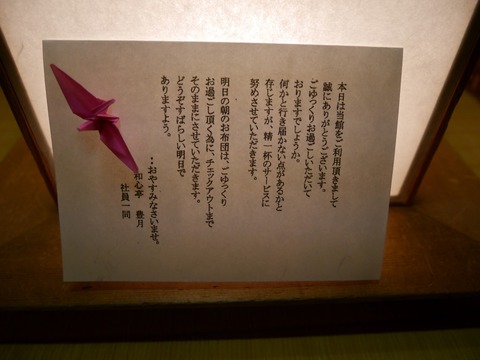 本日は当館をご利用頂きまして
誠にありがとうございます。
ごゆっくりお過ごしいただいて
おりますでしょうか。
何かと行き届かない点があるかと
存じますが、精一杯のサービスに
努めさせていただきます。
明日の朝のお布団は、ごゆっくり
お過ごし頂く為に、チェックアウトまで
そのままにさせていただきます。
どうぞすばらしい明日で
ありますよう。
‥おやすみなさいませ。
和心亭 豊月
社員一同